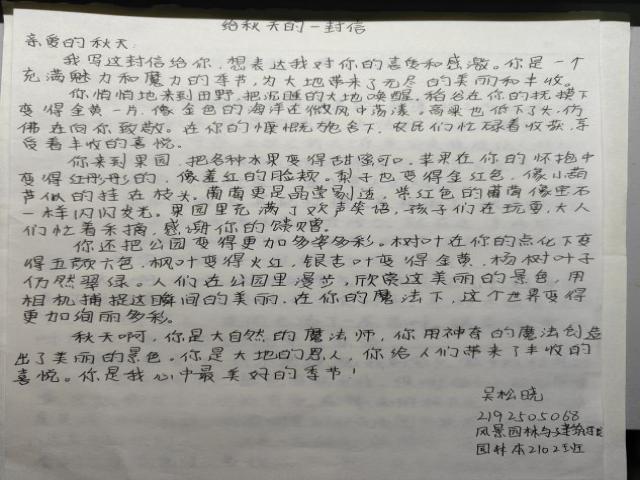 给秋天的一封信
亲爱的秋天:
我写这封信给你,想表达我对你的喜爱和感激。你是一个
充满魅力和魔力的季节,为大地带来了无尽的美丽和丰收。
你悄悄地来到田野,把沉睡的大地唤醒。稻谷在你的抚摸下
变得金黄一片,像金色的海洋在微风中荡漾。高粱也低下了头,仿
佛在向你致敬。在你的慷慨无私下,农民们忙碌着收获,享
受着丰收的喜悦。
你来到果园,把各种水果变得甜蜜可口。苹果在你的怀抱中
变得红彤彤的,像羞红的脸颊。梨子也变得金红色,像小葫
芦似的挂在枝头。葡萄更是晶莹剔透,紫红色的葡萄像宝石
一样闪闪发光。果园里充满了欢声笑语,孩子们在玩耍,大人
们忙着采摘,感谢你的馈赠。
你还把公园变得更加多姿多彩。树叶在你的点化下变
得五颜六色,枫叶变得火红,银杏叶变得金黄,杨树叶子
仍然翠绿。人们在公园里漫步,欣赏这美丽的景色,用
相机捕捉这瞬间的美丽。在你的魔法下,这个世界变得
更加绚丽多彩。
秋天啊,你是大自然的魔法师,你用神奇的魔法创造
出了美丽的景色。你是大地的恩人,你给人们带来了丰收的
喜悦。你是我心中最美好的季节!
吴松晓
2192505068
风景园林与建筑
园林本2102班